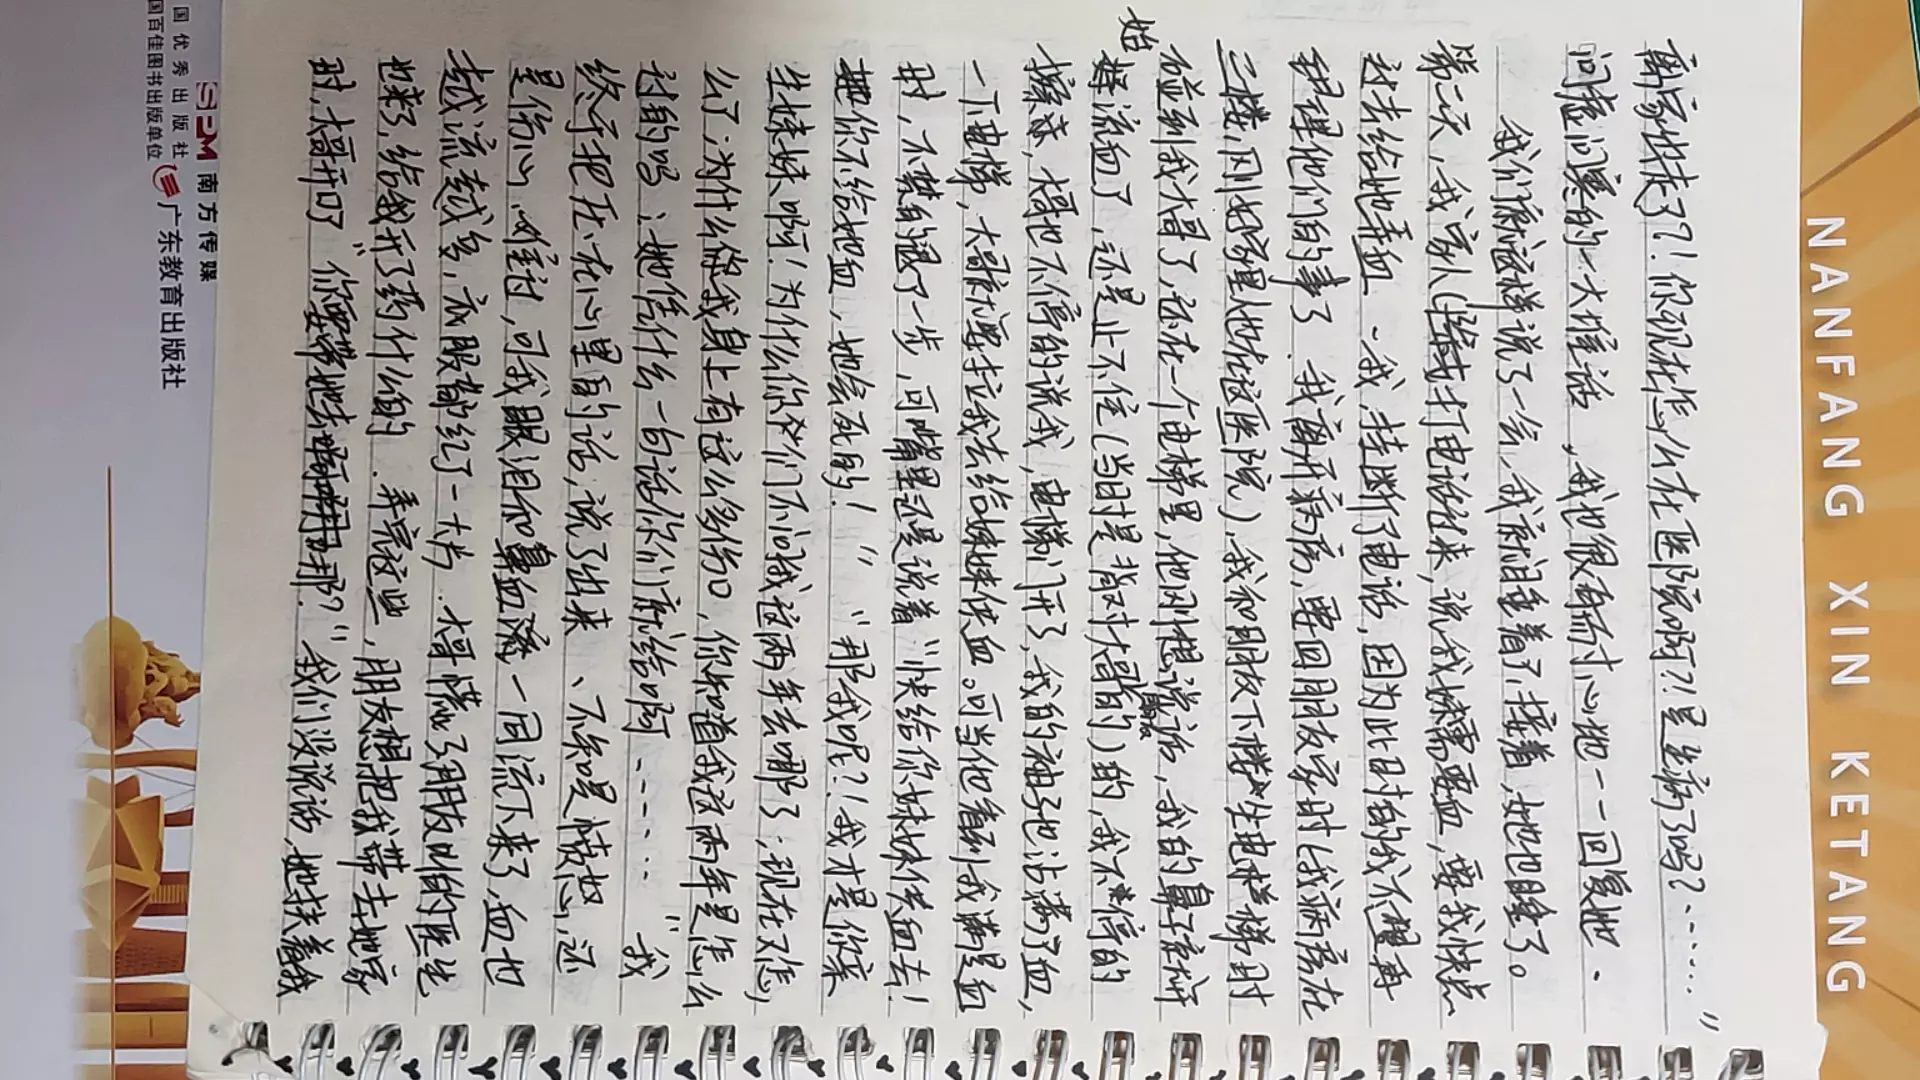 离家出走了?!你现在怎么在医院啊?!是生病了吗?……"
问虚问寒的一大堆话,我也很有耐心地一一回复她、
我们就这样说了一会,我就睡着了,接着,她也睡了。
第二天,我家人打电话过来,说我妹需要血,要我快点
过去给她弄血~我挂断了电话,因为此时的我不想再
理他们的事了.我离开病房,要回朋友家时(我病房在
三楼,刚好家里人也在这医院),我和朋友下楼坐电梯时
碰到我大哥了,还在一个电梯里,他刚想说话,我的鼻子就开始
流血了,还是止不住(当时是背对大哥的)的,我不停的
擦、大哥也不停的说我,电梯门开了,我的袖子也沾满了血,
一下电梯,大哥就要拉我去给妹妹供血。可当他看到我满是血
时,不禁的退了一步,可嘴里还是说着"快给你妹妹供血去!
她你不给她血,她会死的!" "那我呢?!我才是你亲
生妹妹啊!为什么你你们不问我这两年去哪了;现在又怎
么了;为什么我身上有这么多伤口,你知道我这两年是怎么
过的吗;她凭什么一句话你们就给啊……" 我
终于把压在心里的话,说了出来、不知是愤怒,还
是伤心、难过,可我眼泪和鼻血流一同流下来了,血也
越流越多,衣服都红了一大片.大哥慌了,朋友叫的医生
也来了,给我开了药什么的.弄完这些,朋友想把我带去她家
时,大哥开口"你要带她去哪?"我们没说话,她扶着我
NANFANG XIN KETANG
国优秀出版社
国百佳图书出版单位
南方传媒
广东教育出版社